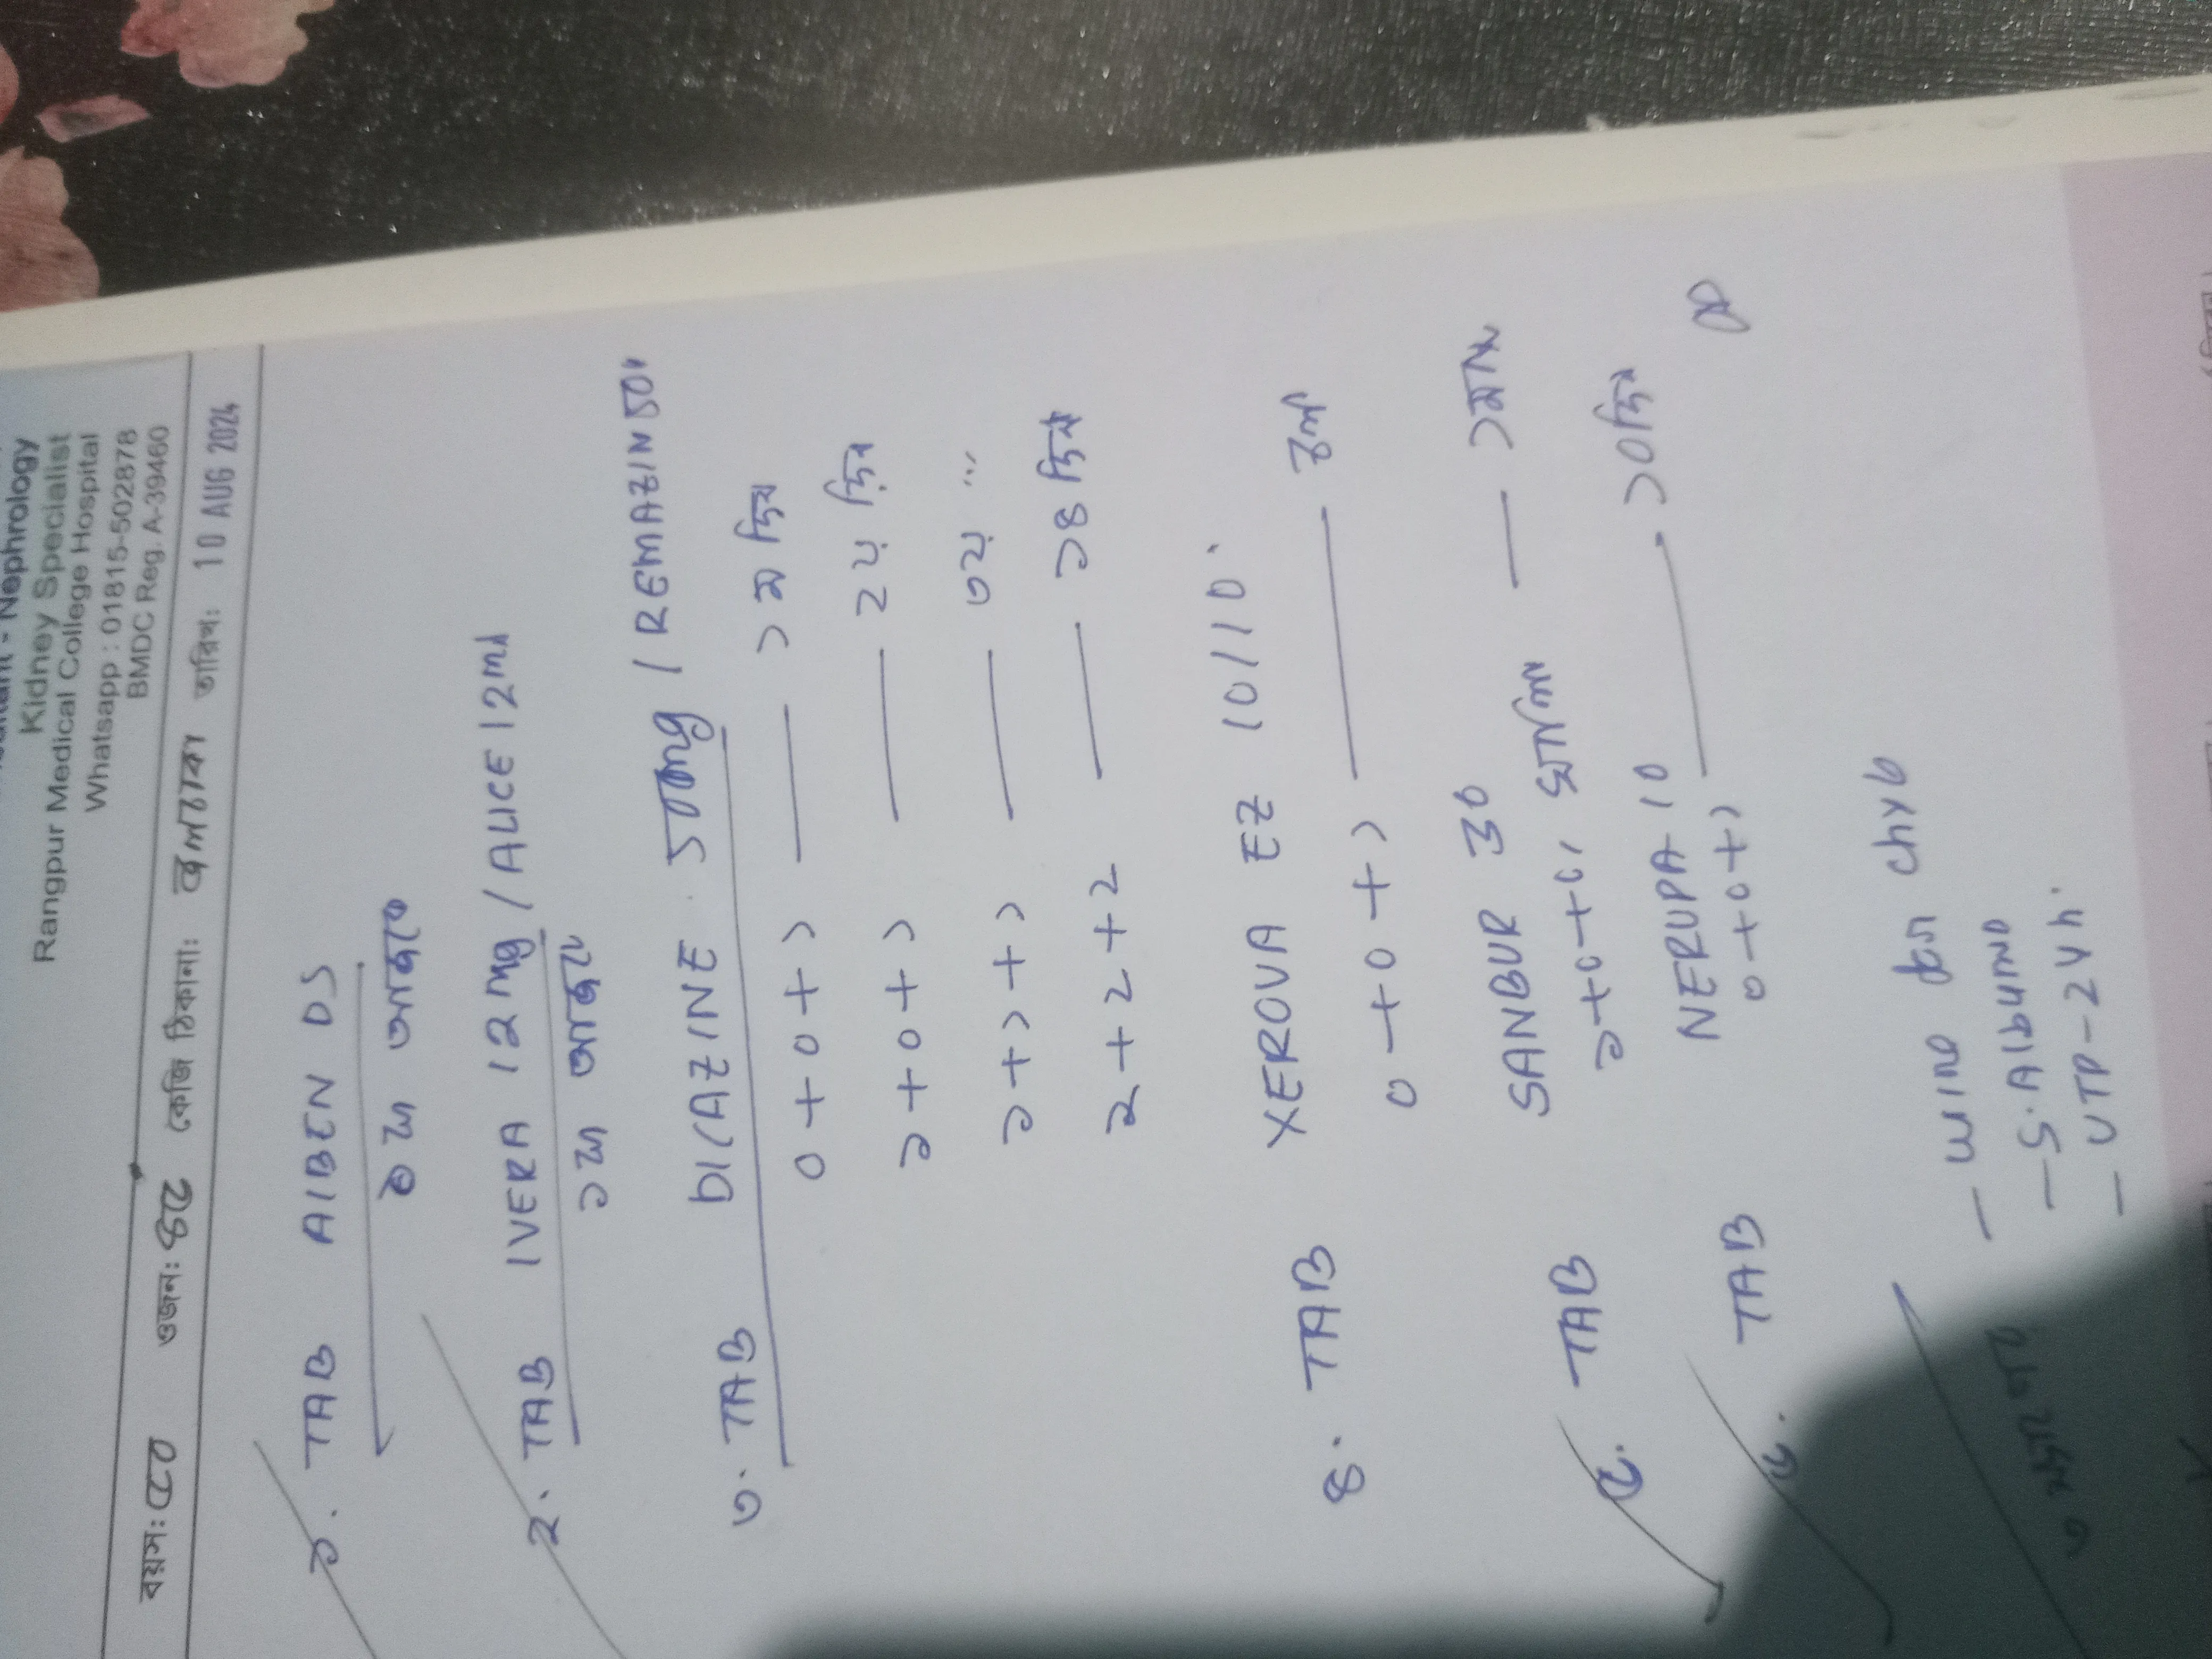 Nephrology
Kidney Specialist
Rangpur Medical College Hospital
Whatsapp : 01815-502878
BMDC Reg. A-39460
বয়স: ওজন: কেজি ঠিকানা: জলঢাকা তারিখ: 10 AUG 2024
১. TAB AlBEN DS
২. TAB IVERA 12mg / ALICE 12md
৩. TAB DICAZINE 500mg / REMAZIN 500
0 + 0 + ১ — ১ম দিন
১ + 0 + ১ — ২য় দিন
১ + ১ + ১ — ৩য় ...
২ + ২ + ২ — ১৪ দিন
৪. TAB XEROVA EZ 10/10.
0 + 0 + ১ — চলবে
৫. TAB SANBUR 30
১ + 0 + 0, — ১মাস
৬. TAB NERUPA 10
0 + 0 + ১ — ১০দিন
— urine for chyle
— S. Albumin
— UTP - 24h.
৩ মাস পরে